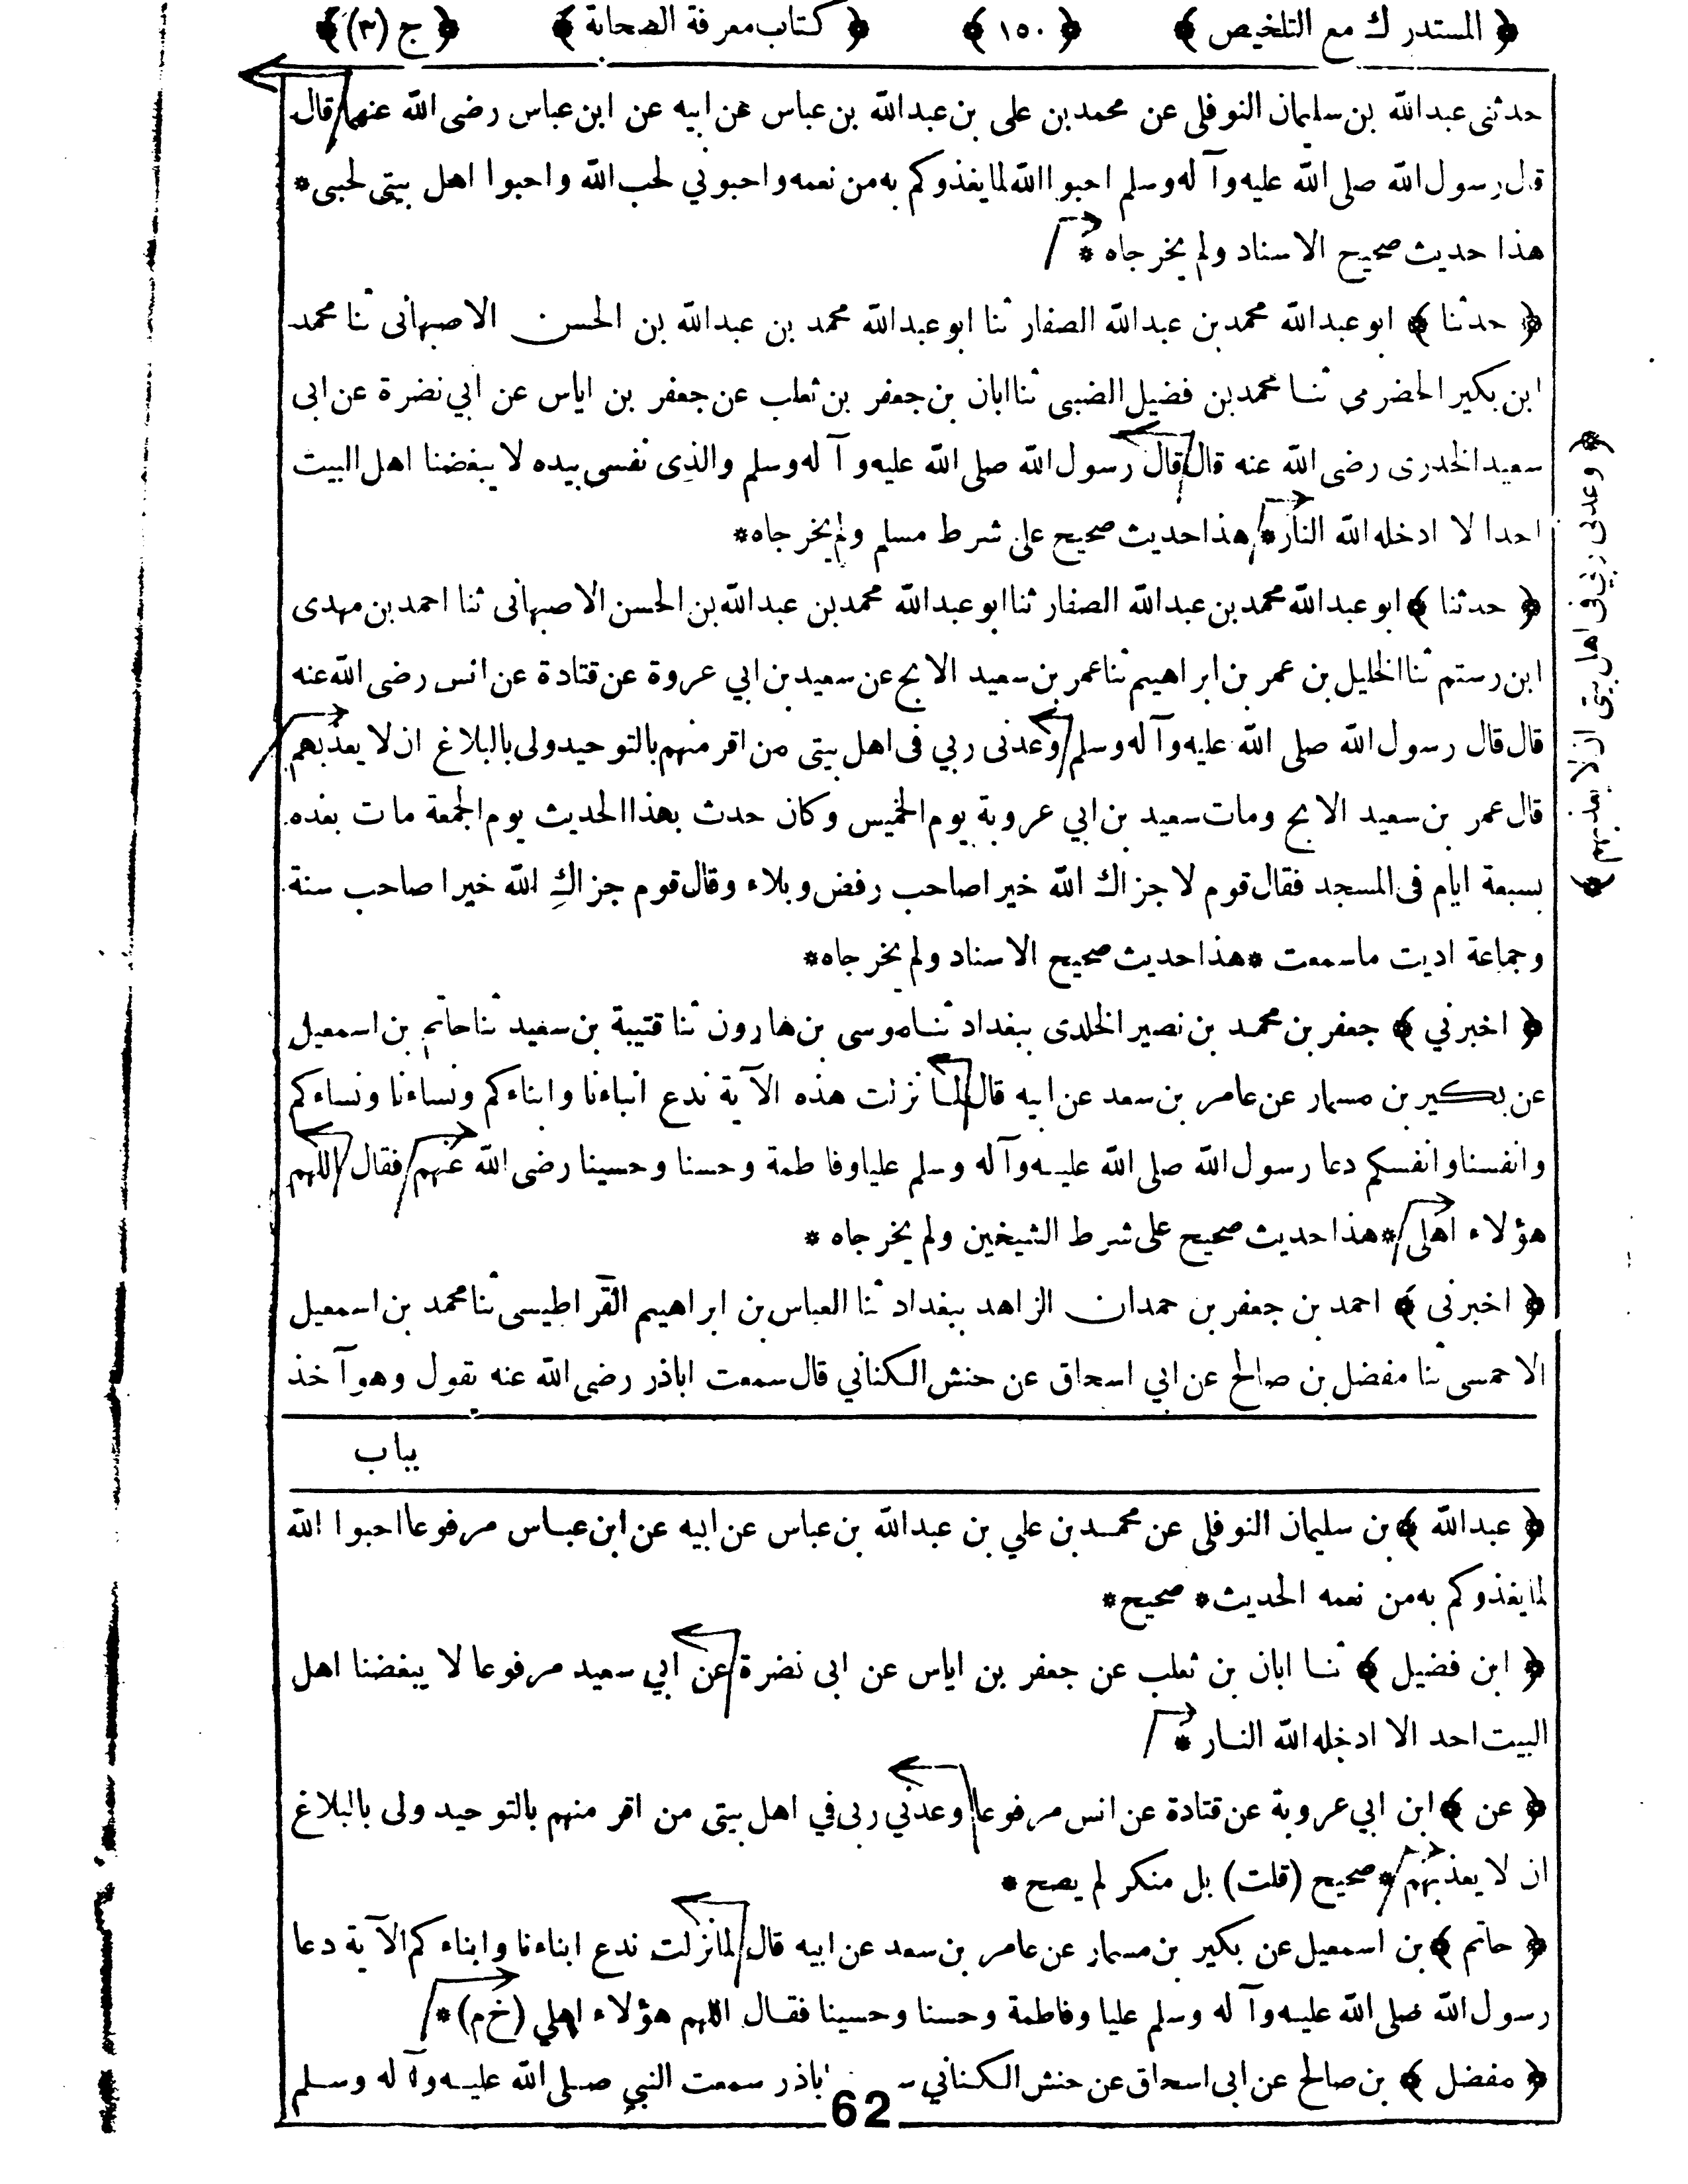 ﴿ المستدرك مع التلخيص ﴾ ﴿ ١٥٠ ﴾ ﴿ كتاب معرفة الصحابة ﴾ ﴿ ج (٣) ﴾
حدثنى عبدالله بن سليمان النوفلى عن محمد بن على بن عبدالله بن عباس عن ابيه عن ابن عباس رضى الله عنهما قال
قال رسول الله صلى الله عليه وآله وسلم احبوا الله لما يغذوكم به من نعمه واحبوني لحب الله واحبوا اهل بيتى لحبى *
هذا حديث صحيح الاسناد ولم يخرجاه *
﴿ حدثنا ﴾ ابو عبدالله محمد بن عبدالله الصفار ثنا ابو عبدالله محمد بن عبدالله بن الحسن الاصبهانى ثنا محمد
ابن بكير الحضرمى ثنا محمد بن فضيل الضبى ثنا ابان بن جعفر بن ثعلب عن جعفر بن اياس عن ابي نضرة عن ابى
سعيد الخدرى رضى الله عنه قال قال رسول الله صلى الله عليه وآله وسلم والذى نفسى بيده لا يبغضنا اهل البيت
احدا لا ادخله الله النار * هذا حديث صحيح على شرط مسلم ولم يخرجاه *
﴿ حدثنا ﴾ ابو عبدالله محمد بن عبدالله الصفار ثنا ابو عبدالله محمد بن عبدالله بن الحسن الاصبهانى ثنا احمد بن مهدى
ابن رستم ثنا الخليل بن عمر بن ابراهيم ثنا عمر بن سعيد الابح عن سعيد بن ابي عروة عن قتادة عن انس رضى الله عنه
قال قال رسول الله صلى الله عليه وآله وسلم وعدنى ربي فى اهل بيتى من اقر منهم بالتوحيد ولى بالبلاغ ان لا يعذبهم
قال عمر بن سعيد الابح ومات سعيد بن ابي عروبة يوم الخميس وكان حدث بهذا الحديث يوم الجمعة مات بعده
بسبعة ايام فى المسجد فقال قوم لا جزاك الله خيرا صاحب رفض وبلاء وقال قوم جزاك الله خيرا صاحب سنة
وجماعة اديت ما سمعت * هذا حديث صحيح الاسناد ولم يخرجاه *
﴿ اخبرني ﴾ جعفر بن محمد بن نصير الخلدى ببغداد ثنا موسى بن هارون ثنا قتيبة بن سعيد ثنا حاتم بن اسمعيل
عن بكير بن مسمار عن عامر بن سعد عن ابيه قال لما نزلت هذه الآية ندع ابناءنا وابناءكم ونساءنا ونساءكم
وانفسنا وانفسكم دعا رسول الله صلى الله عليه وآله وسلم عليا وفاطمة وحسنا وحسينا رضى الله عنهم فقال اللهم
هؤلاء اهلى * هذا حديث صحيح على شرط الشيخين ولم يخرجاه *
﴿ اخبرنى ﴾ احمد بن جعفر بن حمدان الزاهد ببغداد ثنا العباس بن ابراهيم القراطيسى ثنا محمد بن اسمعيل
الاحمسى ثنا مفضل بن صالح عن ابي اسحاق عن حنش الكناني قال سمعت اباذر رضى الله عنه يقول وهو آخذ
بباب
﴿ عبدالله ﴾ بن سليمان النوفلى عن محمد بن علي بن عبدالله بن عباس عن ابيه عن ابن عباس مرفوعا احبوا الله
لما يغذوكم به من نعمه الحديث * صحيح *
﴿ ابن فضيل ﴾ ثنا ابان بن ثعلب عن جعفر بن اياس عن ابى نضرة عن ابي سعيد مرفوعا لا يبغضنا اهل
البيت احد الا ادخله الله النار *
﴿ عن ﴾ ابن ابي عروبة عن قتادة عن انس مرفوعا وعدني ربى في اهل بيتى من اقر منهم بالتوحيد ولى بالبلاغ
ان لا يعذبهم * صحيح (قلت) بل منكر لم يصح *
﴿ حاتم ﴾ بن اسمعيل عن بكير بن مسمار عن عامر بن سعد عن ابيه قال لما نزلت ندع ابناءنا وابناءكم الآية دعا
رسول الله صلى الله عليه وآله وسلم عليا وفاطمة وحسنا وحسينا فقال اللهم هؤلاء اهلي (خ م) *
﴿ مفضل ﴾ بن صالح عن ابى اسحاق عن حنش الكناني اباذر سمعت النبي صلى الله عليه وآله وسلم
62
﴿ وعدنى ربي فى اهل بيتى ان لا يعذبهم ﴾